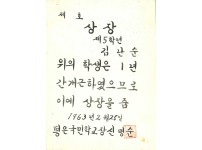 제 호
상장
제5학년
김난순
위의 학생은 1년
간 개근하였으므로
이에 상장을 줌
1963년 2월 25일
평은국민학교장 신명순